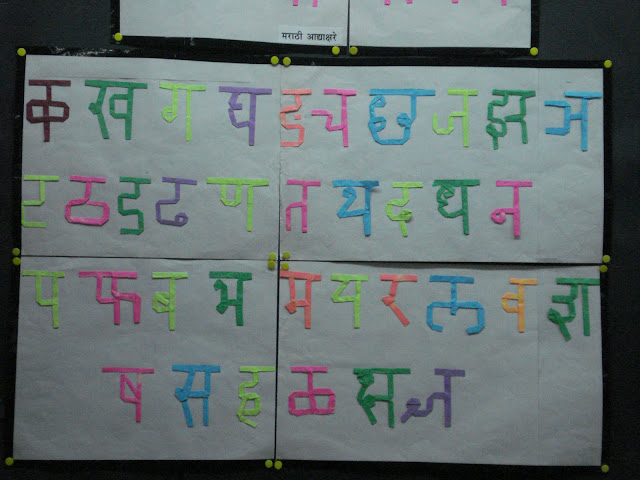 मराठी आद्याक्षरे
क ख ग घ ङ च छ ज झ ञ
ट ठ ड ढ ण त थ द ध न
प फ ब भ म य र ल व श
ष स ह ळ क्ष ज्ञ